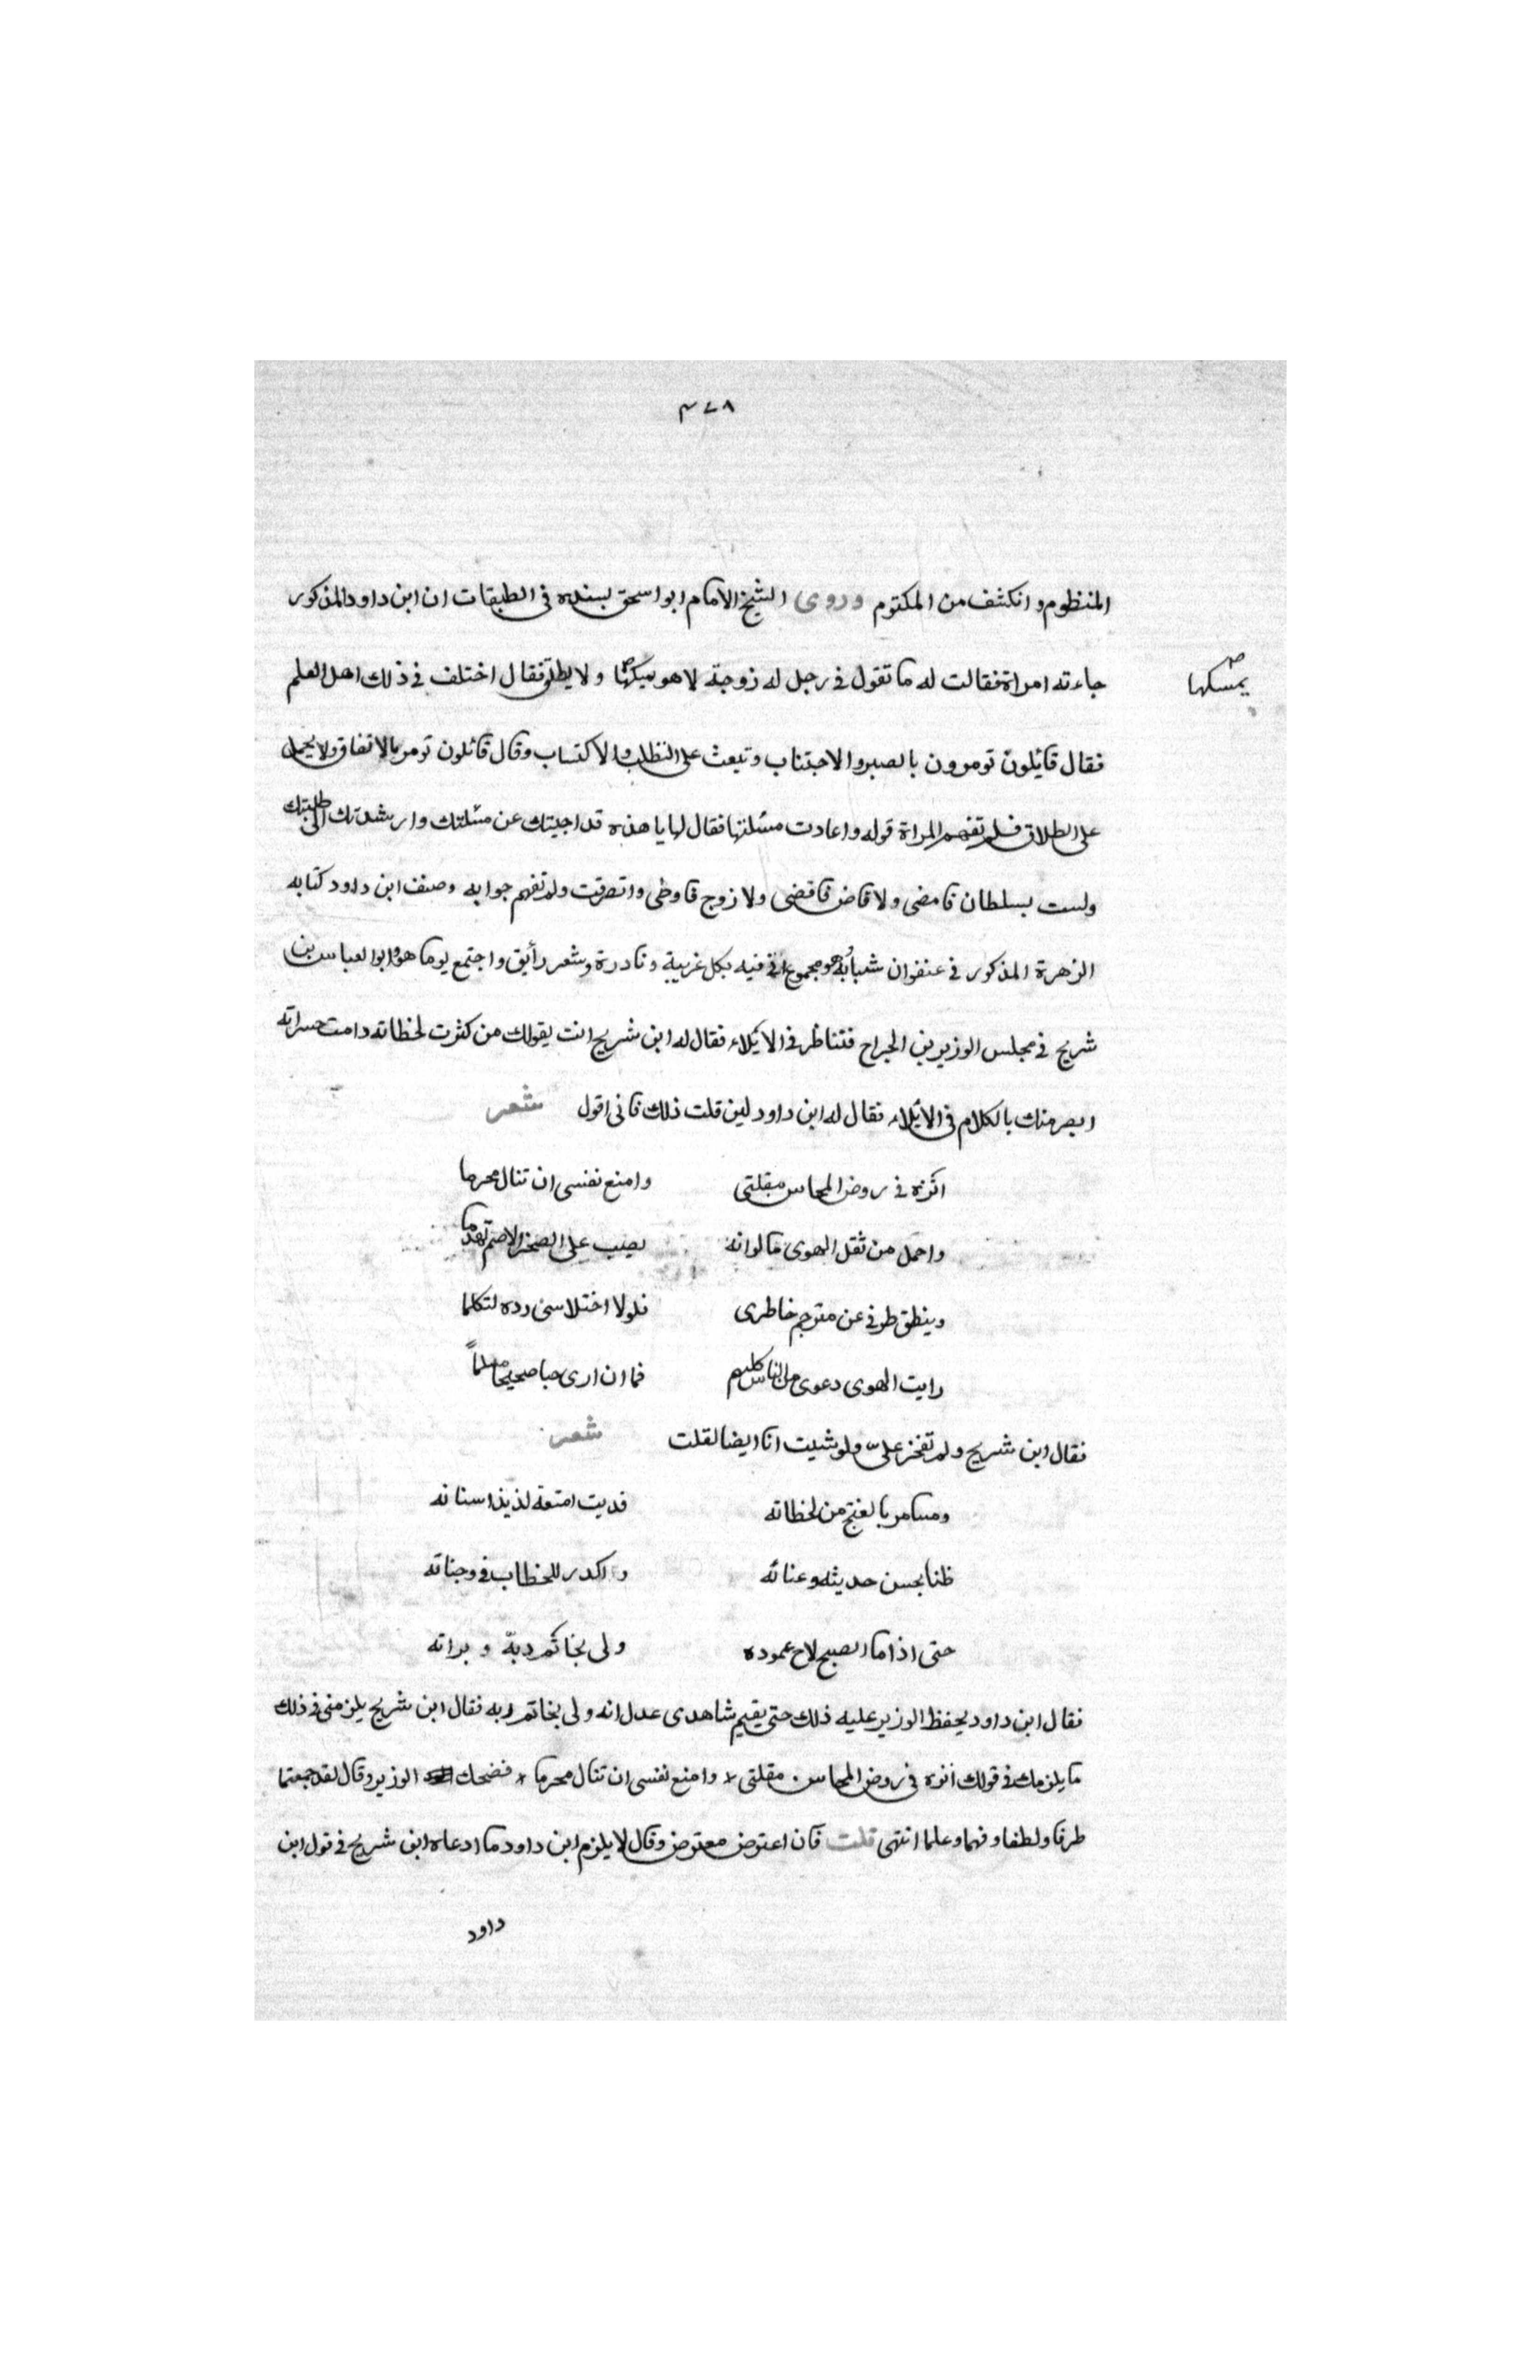 ٣٧٨
المنظوم وانكشف من المكتوم وروى الشيخ الامام ابو اسحق بسنده فى الطبقات ان ابن داود المذكور
جاءته امراة فقالت له ما تقول فى رجل له زوجة لا هو يمسكها ولا يطلق فقال اختلف فى ذلك اهل العلم
يمسكها
فقال قائلون تومرون بالصبر والاجتناب وتبعث على التطلب والاكتساب وقال قائلون تومر بالاتفاق ولا يحمل
على الطلاق فلم تفهم المراة قوله واعادت مسئلتها فقال لها يا هذه قد اجبتك عن مسئلتك وارشدتك الى طلبتك
ولست بسلطان فامضى ولا قاض فاقضى ولا زوج فاوطى وانصرفت ولم تفهم جوابه وصنف ابن داود كتابه
الزهرة المذكور فى عنفوان شبابه وهو مجموع اتى فيه بكل غريبة ونادرة وشعر رأيق واجتمع يوما هو وابو العباس بن
شريح فى مجلس الوزير بن الجراح فتناظر فى الايلاء فقال له ابن شريح انت يقولك من كثرت لحظاته دامت حسراته
ابصر منك بالكلام فى الايلاء فقال له ابن داود لين قلت ذلك فانى اقول شعر
انزه فى روض المحاسن مقلتى وامنع نفسى ان تنال محرما
واحمل من ثقل الهوى ما لو انه يصب على الصخر الاصم تهدما
وينطق طرفى عن مترجم خاطرى فلولا اختلاسى رده لتكلما
رايت الهوى دعوى من الناس كلهم فما ان ارى حبا صحيحا مسلماً
فقال ابن شريح ولم تفخر علىّ ولو شيت انا ايضا لقلت شعر
ومسامر بالغنج من لحظاته قد بت امتعه لذيذ اسناته
ظنا بحسن حديثه وعنائه واكدر للخطاب فى وجناته
حتى اذا ما الصبح لاح عموده ولى بخاتم ربه وبراته
فقال ابن داود يحفظ الوزير عليه ذلك حتى يقيم شاهدى عدل انه ولى بخاتم ربه فقال ابن شريح يلزمنى فى ذلك
ما يلزمك فى قولك أنزه فى روض المحاسن مقلتى * وامنع نفسى ان تنال محرما * فضحك الوزير وقال لقد جمعتما
ظرفا ولطفا وفهما وعلما انتهى قلت فان اعترض معترض وقال لا يلزم ابن داود ما ادعاه ابن شريح فى قول ابن
داود